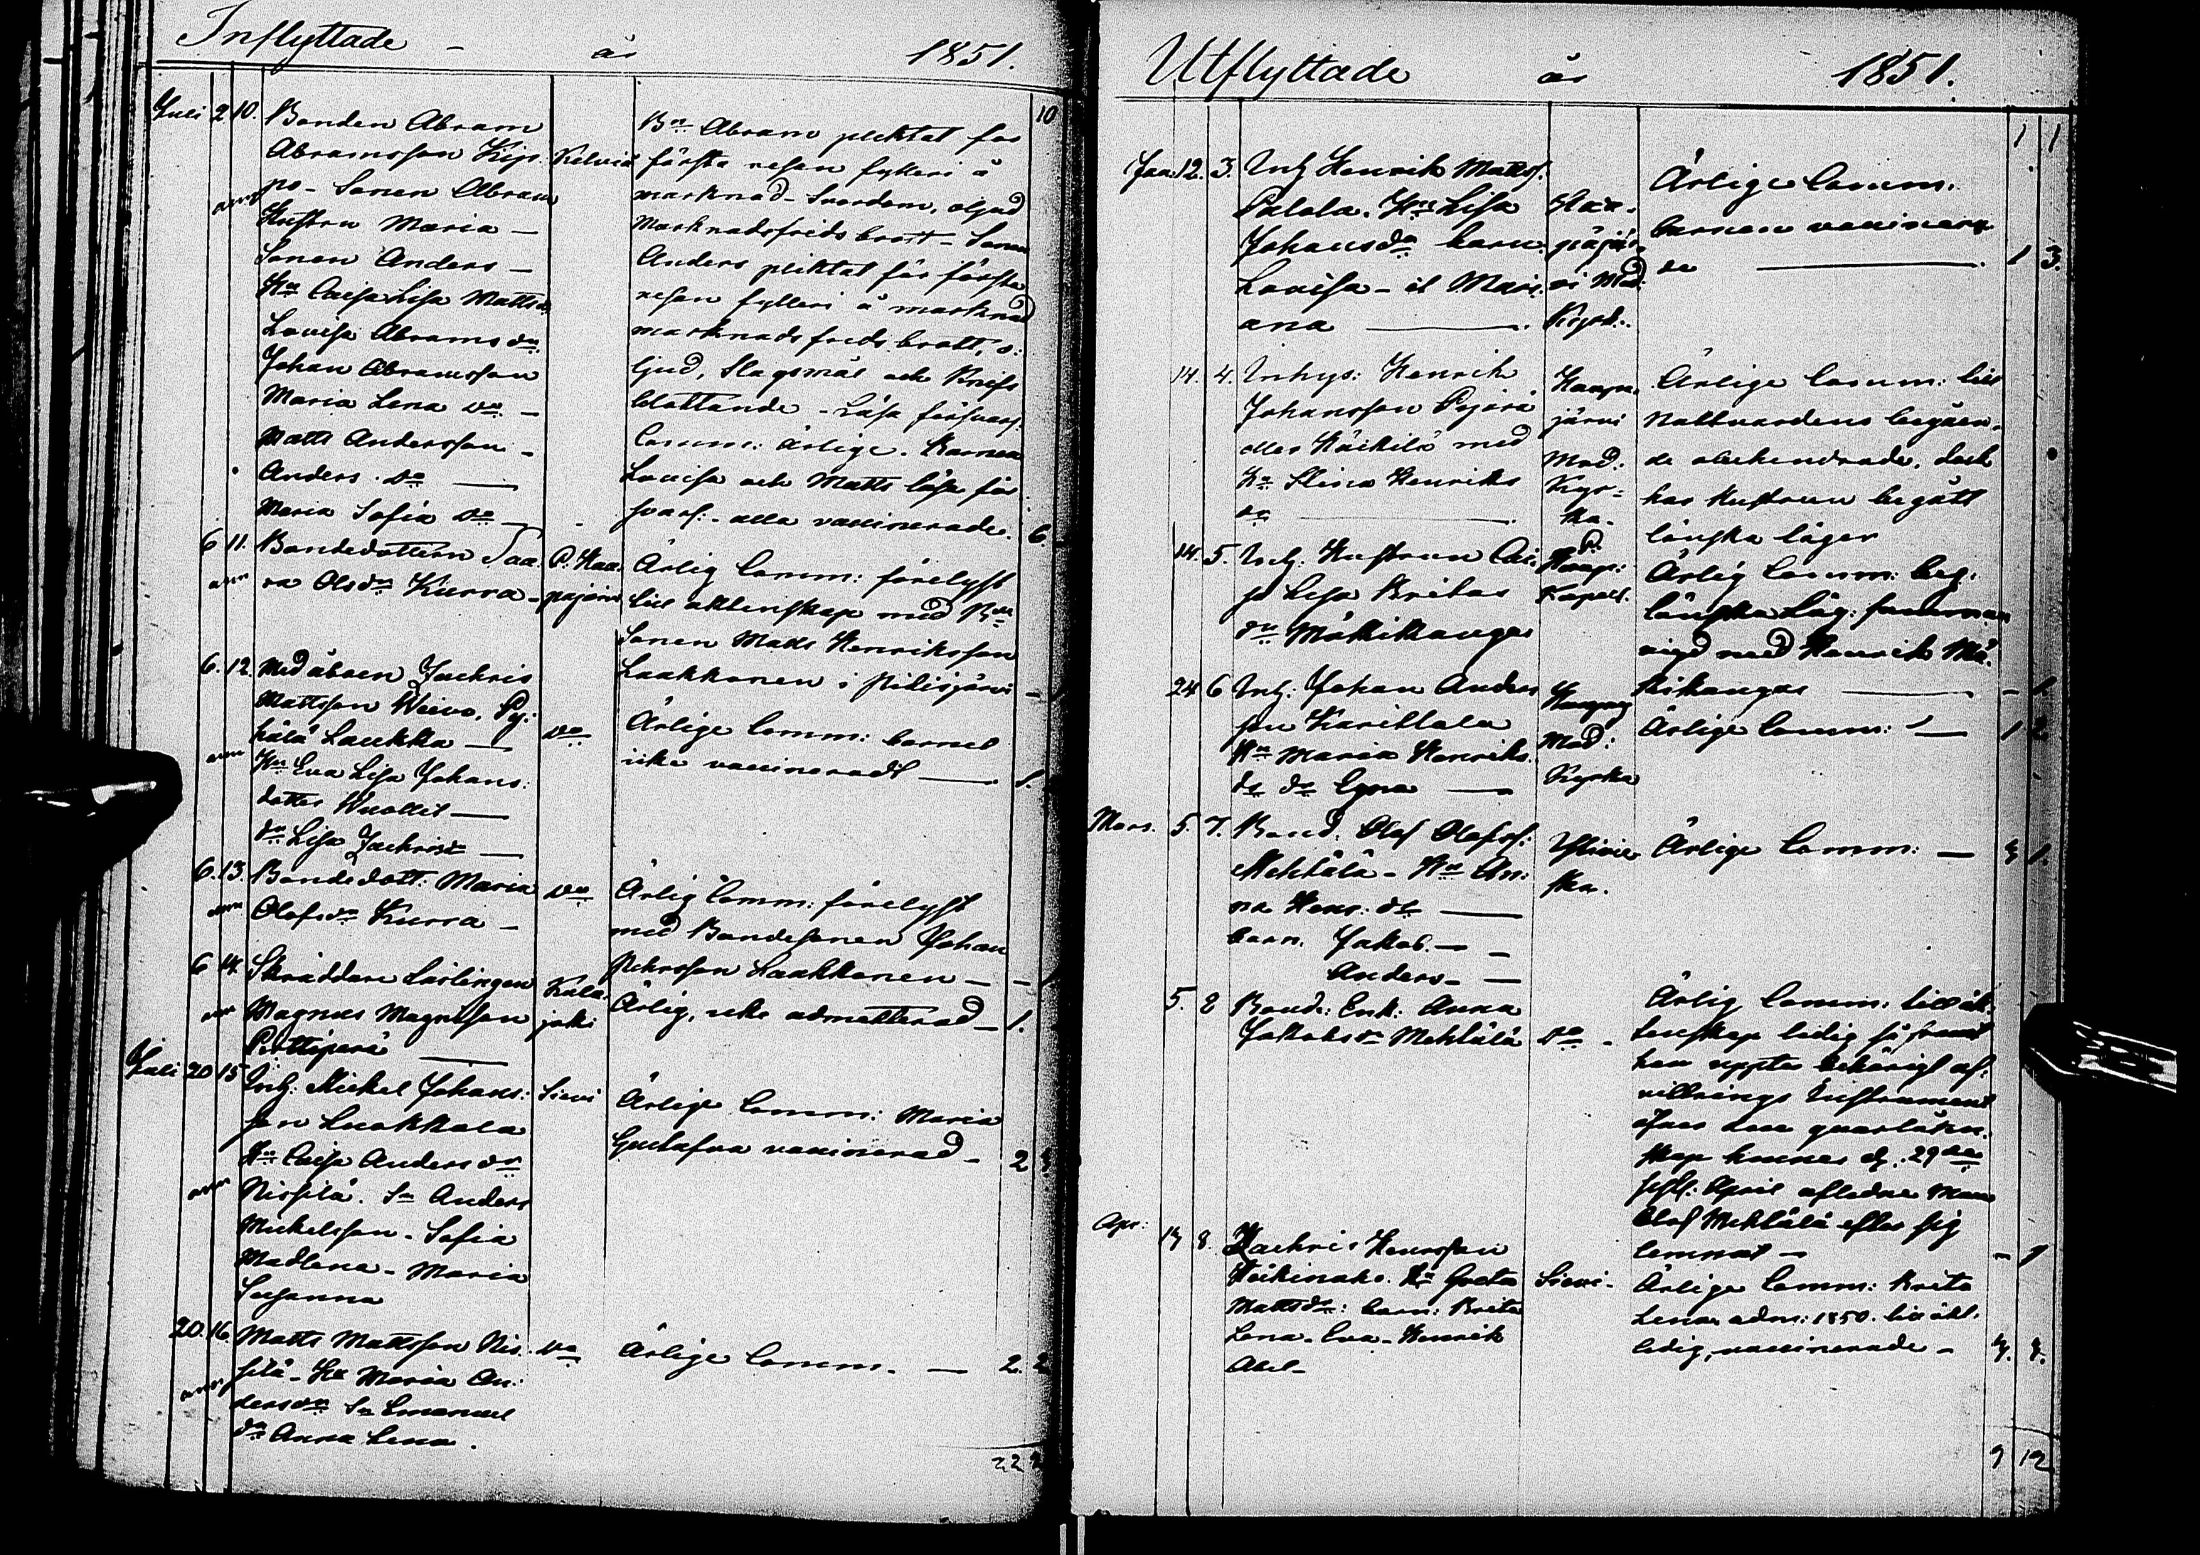 Inflyttade - år 1851.
10
Juli 2 10. Bonden Abram
Abramsson Kip-
po - Sonen Abram
Hustru Maria -
Sonen Anders -
Hu Caisa Lisa Matts dr
Lovisa Abrams dr
Johan Abramsson
Maria Lena dr -
Matts Andersson -
Anders do -
Maria Sofia do -
Kelviå
Bn Abram pliktat för
första resan fylleri å
marknad - Svordom, oljud
Marknadsfridsbrott - Sonen
Anders pliktat för första
resan fylleri å marknad
marknadsfridsbrott, o:
ljud, Slagsmål och Knifs
blottande - Läsa försvarl.
Comm: ärlige. Barnen
Lovisa och Matts läsa för
svarl: - alla vaccinerade. 6.
6 11. Bondedottern Saa-
ra Ols dr Kurra -
P. Haa-
pajärvi
Ärlig Comm: förelyst
till äktenskap med Bde
Sonen Matts Henriksson
Laakkonen i Pidisjärvi -
6. 12. Med åboen Zachris
Mattsson
Laukka -
Hu Eva Lisa Johans:
dotter
dr Lisa Zachris dr -
do
Ärlige Comm: barnet
icke vaccineradt - 1.
6. 13. Bondedott: Maria
Olofs dr Kurra -
do
Ärlig Comm: förelyst
med Bondesonen Johan
Pehrsson Laakkonen -
6 14. Skräddare Lärlingen
Magnus Magnusson
Perttiperä -
Kala-
joki
Ärlig, icke admitterad - 1.
Juli 20 15 Inh: Mickel Johans:
son Luokkala
Hu Caisa Anders dr
Nissilä. Sn Anders
Mickelsson - Sofia
Madlena - Maria
Susanna
Sievi
Ärlige Comm: Maria
Gustafva vaccinerad - 2
20. 16. Matts Mattsson Nis-
silä - Hu Maria An:
ders dr Sn Emanuel
dr Anna Lena.
do
Ärlige Comm. - 2. 2
22
Utflyttade år 1851.
1 1
Jan: 12. 3. Inh Henrik Matts.
Palola. Hu Lisa
Johans dr barn
Lovisa - et Mari-
ana -
Haa-
pajär-
vi Mod:
Kyrk:.
Ärlige Comm.
barnen vaccinera
de - 1 3.
14. 4. Inhys: Henrik
Johansson Pyörä
eller Häikilä med
Hu Stina Henriks
dr -
Haapa-
järvi
Mod:
Kyr-
ka.
Ärlige Comm: till
Nattvardens begåen-
de oberhindrade, dock
har hustrun begått
lönska läger
14. 5. Inh. Hustrun Cai-
sa Lisa Britas
dr Mökikangas
Haap:
Kapell.
Ärlig Comm: beg.
lönska läg: samman
vigd med Henrik Mä-
kikangas - - 1.
24 6 Inh: Johan Anders
son Karittala
Hu Maria Henriks
dr
Mod:
Kyrka
Ärlige Comm: - 1 2
Mars. 5. 7. Bond. Olof Olofss:
Mehtälä - Hu An-
na Henr: dr -
barn. Jakob. - -
Anders - -
Ärlige Comm: - 3 1.
5. 8 Bond: Enk: Anna
Jakobs dr Mehtälä
do -
Ärlig Comm: till äk-
tenskap ledig så framt
hon uppter behörigt af-
vittrings Instrument
öfver den qvarlåten-
skap hennes d. 29de
sistl: April aflidne Man
Olof Mehtälä efter sig
lemnat - - 1
Apr: 13 8. Zachris Henrsson
Häikinaho. Hu Greta
Matts dr: barn: Brita
Lena - Eva - Henrik
Abel -
Sievi -
Ärlige Comm: Brita
Lena adm: 1850. till äkt.
ledig, vaccinerade - 3. 3.
9 12